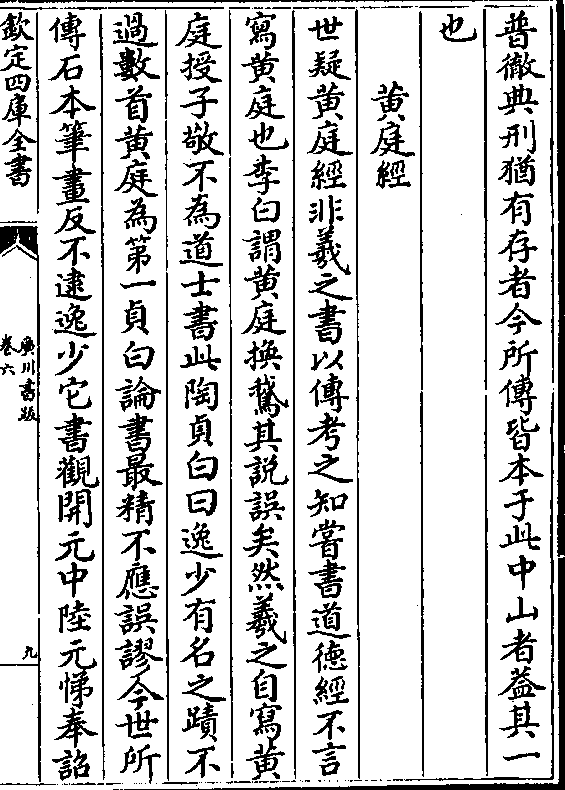 普徹典刑猶有存者今所傳皆本于此中山者葢其一
也
黄庭經
世疑黄庭經非羲之書以傳考之知嘗書道德經不言
寫黄庭也李白謂黄庭換鵞其説誤矣然羲之自寫黄
庭授子敬不為道士書此陶貞白曰逸少有名之蹟不
過數首黄庭為第一貞白論書最精不應誤謬今世所
傳石本筆畫反不逮逸少它書觀開元中陸元悌奉詔
欽定四庫全書
廣川書跋
卷六
九